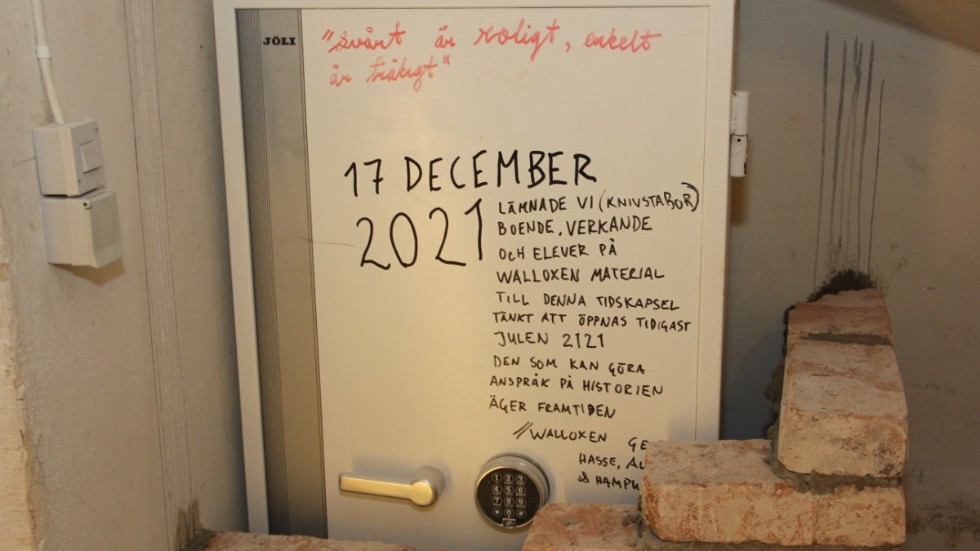 JÖLI
"Svårt är roligt, enkelt
är tråkigt"
17 DECEMBER
2021
LÄMNADE VI (KNIVSTABOR)
BOENDE, VERKANDE
OCH ELEVER PÅ
WALLOXEN MATERIAL
TILL DENNA TIDSKAPSEL
TÄNKT ATT ÖPPNAS TIDIGAST
JULEN 2121
DEN SOM KAN GÖRA
ANSPRÅK PÅ HISTORIEN
ÄGER FRAMTIDEN
//WALLOXEN GE
HASSE, AL
& HAMPU
1 2 3
4 5 6
7 8 9